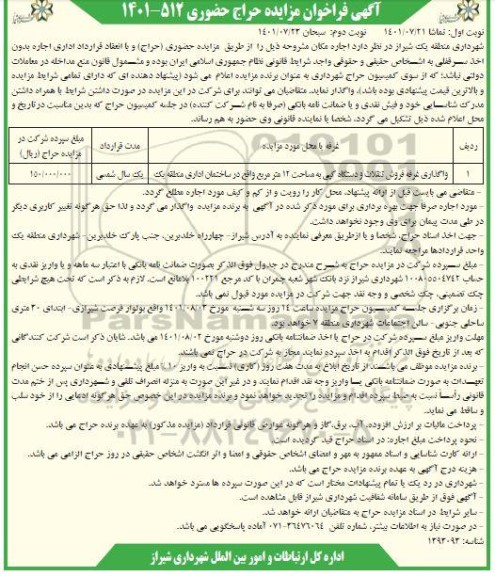 آگهی فراخوان مزایده حراج حضوری ۵۱۲-۱۴۰۱
نوبت اول: تماشا ۱۴۰۱/۰۷/۲۱ نوبت دوم: سبحان ۱۴۰۱/۰۷/۲۳
شهرداری منطقه یک شیراز در نظر دارد اجاره مکان مشروحه ذیل را از طریق مزایده حضوری (حراج) و با انعقاد قرارداد اداری اجاره بدون
اخذ سرقفلی به اشخاص حقیقی و حقوقی واجد شرایط قانونی نظام جمهوری اسلامی ایران بوده و مشمول قانون منع مداخله در معاملات
دولتی نباشد؛ که از سوی کمیسیون حراج شهرداری به عنوان برنده مزایده اعلام می شود (پیشنهاد دهنده ای که دارای تمامی شرایط مزایده
و بالاترین قیمت پیشنهادی بوده باشد)، واگذار نماید. متقاضیان می توانند برای شرکت در این مزایده در صورت داشتن شرایط با همراه داشتن
مدرک شناسایی خود و فیش نقدی و یا ضمانت نامه بانکی (صرفا به نام شرکت کننده) در جلسه کمیسیون حراج که بدین مناسبت در تاریخ و
محل اعلام شده ذیل تشکیل می گردد، شخصا یا نماینده قانونی وی حضور به هم رساند.
ردیف غرفه یا محل مورد مزایده مدت قرارداد مبلغ سپرده شرکت در مزایده حراج (ریال)
۱ واگذاری غرفه فروش تنقلات و دستگاه کپی به مساحت ۱۲ متر مربع واقع در ساختمان اداری منطقه یک یک سال شمسی ۱۵۰/۰۰۰/۰۰۰
- متقاضی می بایست قبل از ارائه پیشنهاد، محل کار را رویت و از کم و کیف مورد اجاره مطلع گردد.
- مورد اجاره صرفا جهت بهره برداری برای مورد ذکر شده در آگهی به برنده مزایده واگذار می گردد و لذا حق هرگونه تغییر کاربری دیگر
در طی مدت پیمان برای وی وجود نخواهد داشت.
- جهت اخذ اسناد حراج، شخصا و یا از طریق معرفی نماینده به آدرس شیراز- چهارراه خلدبرین، جنب پارک خلدبرین- شهرداری منطقه یک
واحد قراردادها مراجعه نمایند.
- مبلغ سپرده شرکت در مزایده حراج به شرح مندرج در جدول فوق الذکر بصورت ضمانت نامه بانکی با اعتبار سه ماهه و یا واریز نقدی به
حساب ۱۰۰۸۰۵۵۰۴۷۴۲ شهرداری شیراز نزد بانک شهر شعبه چمران با کد مرجع ۱۰۰۲۲۱ بلامانع است. لازم به ذکر است که تحت هیچ شرایطی
چک تضمینی، چک شخصی و وجه نقد جهت شرکت در مزایده مورد قبول نمی باشد.
- زمان برگزاری جلسه کمیسیون حراج مزایده ساعت ۱۴ روز سه شنبه مورخ ۱۴۰۱/۰۸/۰۳ واقع بولوار فرصت شیرازی- ابتدای ۳۰ متری
ساحلی جنوبی- سالن اجتماعات شهرداری منطقه ۷ خواهد بود.
مهلت واریز مبلغ سپرده شرکت در حراج یا اخذ ضمانتنامه بانکی روز دوشنبه مورخ ۱۴۰۱/۰۸/۰۲ می باشد. شایان ذکر است شرکت کنندگانی
که بعد از تاریخ فوق الذکر اقدام به اخذ سپرده نمایند مجاز به شرکت در حراج نمی باشند.
- برنده مزایده موظف می باشند از تاریخ ابلاغ به مدت هفت روز (کاری) نسبت به واریز ۱۰٪ مبلغ پیشنهادی به عنوان سپرده حسن انجام
تعهدات به صورت ضمانتنامه بانکی یا واریز وجه نقد اقدام نمایند و در غیر این صورت به منزله انصراف تلقی و شهرداری پس از ختم مدت
قانونی رأساً نسبت به ضبط سپرده اقدام و مزایده را تجدید خواهد نمود و برنده مزایده در این خصوص حق هرگونه ادعایی را از خود سلب
و ساقط می نماید.
- پرداخت مالیات بر ارزش افزوده، آب، برق، گاز و هرگونه عوارض قانونی قرارداد (مزایده مذکور) به عهده برنده حراج می باشد.
- نحوه پرداخت مبلغ اجاره: در اسناد حراج قید گردیده است.
- ارائه کارت شناسایی و اسناد ممهور به مهر و امضای اشخاص حقوقی و امضا و اثر انگشت اشخاص حقیقی در روز حراج الزامی می باشد.
- هزینه درج آگهی به عهده برنده مزایده حراج می باشد.
- شهرداری در رد یک یا تمام پیشنهادات مختار است که در این صورت سپرده ها مسترد خواهد شد.
- آگهی فوق از طریق سامانه شفافیت شهرداری شیراز قابل مشاهده است.
- سایر شرایط در اسناد مزایده حراج به متقاضیان ارائه خواهد شد.
- در صورت نیاز به اطلاعات بیشتر، شماره تلفن ۳۶۴۷۶۰۶۴-۰۷۱ آماده پاسخگویی می باشد.
شناسه: ۱۳۹۳۰۹۳
اداره کل ارتباطات و امور بین الملل شهرداری شیراز